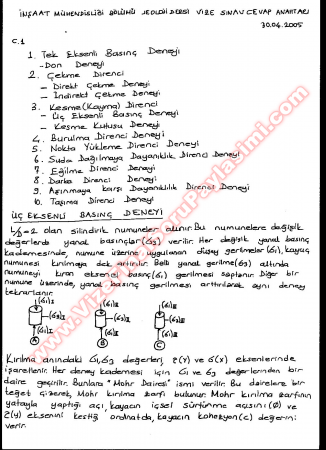 İNŞAAT MÜHENDİSLİĞİ BÖLÜMÜ JEOLOJİ DERSİ VİZE SINAV CEVAP ANAHTARI
30.04.2005
C.1
1. Tek Eksenli Basınç Deneyi
-Don Deneyi
2. Çekme Direnci
- Direkt Çekme Deneyi
- İndirekt Çekme Deneyi
3. Kesme(Kayma) Direnci
- Üç Eksenli Basınç Deneyi
- Kesme Kutusu Deneyi
4. Burulma Direnci Deneyi
5. Nokta Yükleme Direnci Deneyi
6. Suda Dağılmaya Dayanıklılık Direnci Deneyi
7. Eğilme Direnci Deneyi
8. Darbe Direnci Deneyi
9. Aşınmaya karşı Dayanıklılık Direnci Deneyi
10. Taşıma Direnci Deneyi
ÜÇ EKSENLİ BASINÇ DENEYİ
L/D=2 olan silindirik numuneler alınır. Bu numunelere değişik
değerlerde yanal basınçlar (σ3) verilir. Her değişik yanal basınç
kademesinde, numune üzerine uygulanan düşey gerilmeler (σ1), kayaç
numunesi kırılmaya dek arttırılır. Belli yanal gerilme (σ3) altında
numuneyi kıran eksenel basınç (σ1) gerilmesi saptanır. Diğer bir
numune üzerinde, yanal basınç gerilmesi arttırılarak aynı deney
tekrarlanır.
(σ1)I (σ1)II (σ1)III
(σ3)I (σ3)II (σ3)III
A B C
Kırılma anındaki σ1, σ3 değerleri, τ(Y) ve σ(X) eksenlerinde
işaretlenir. Her deney kademesi için σ1 ve σ3 değerlerinden bir
daire geçirilir. Bunlara "Mohr Dairesi" ismi verilir. Bu dairelere bir
teğet çizerek, Mohr kırılma zarfı bulunur. Mohr kırılma zarfının
yatayla yaptığı açı, kayacın içsel sürtünme açısını (Ø) ve
τ(Y) eksenini kestiği ordinatda, kayacın kohezyon (c) değerini
verir.
www.VizeveFinalSoruPaylasimi.com